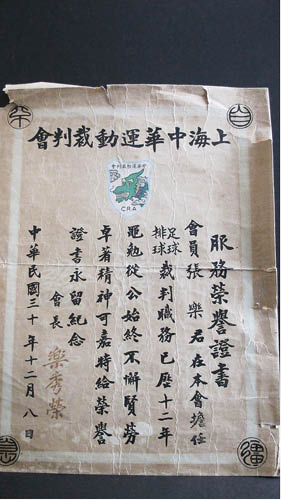 上海中華運動裁判會
中華運動裁判會
CRA
服務榮譽證書
會員張樂君在本會擔任
足球排球裁判職務已歷十二年
黽勉從公始終不懈賢勞
卓著精神可嘉特給榮譽
證書永留紀念
會長 樂秀榮
中華民國三十年十二月八日